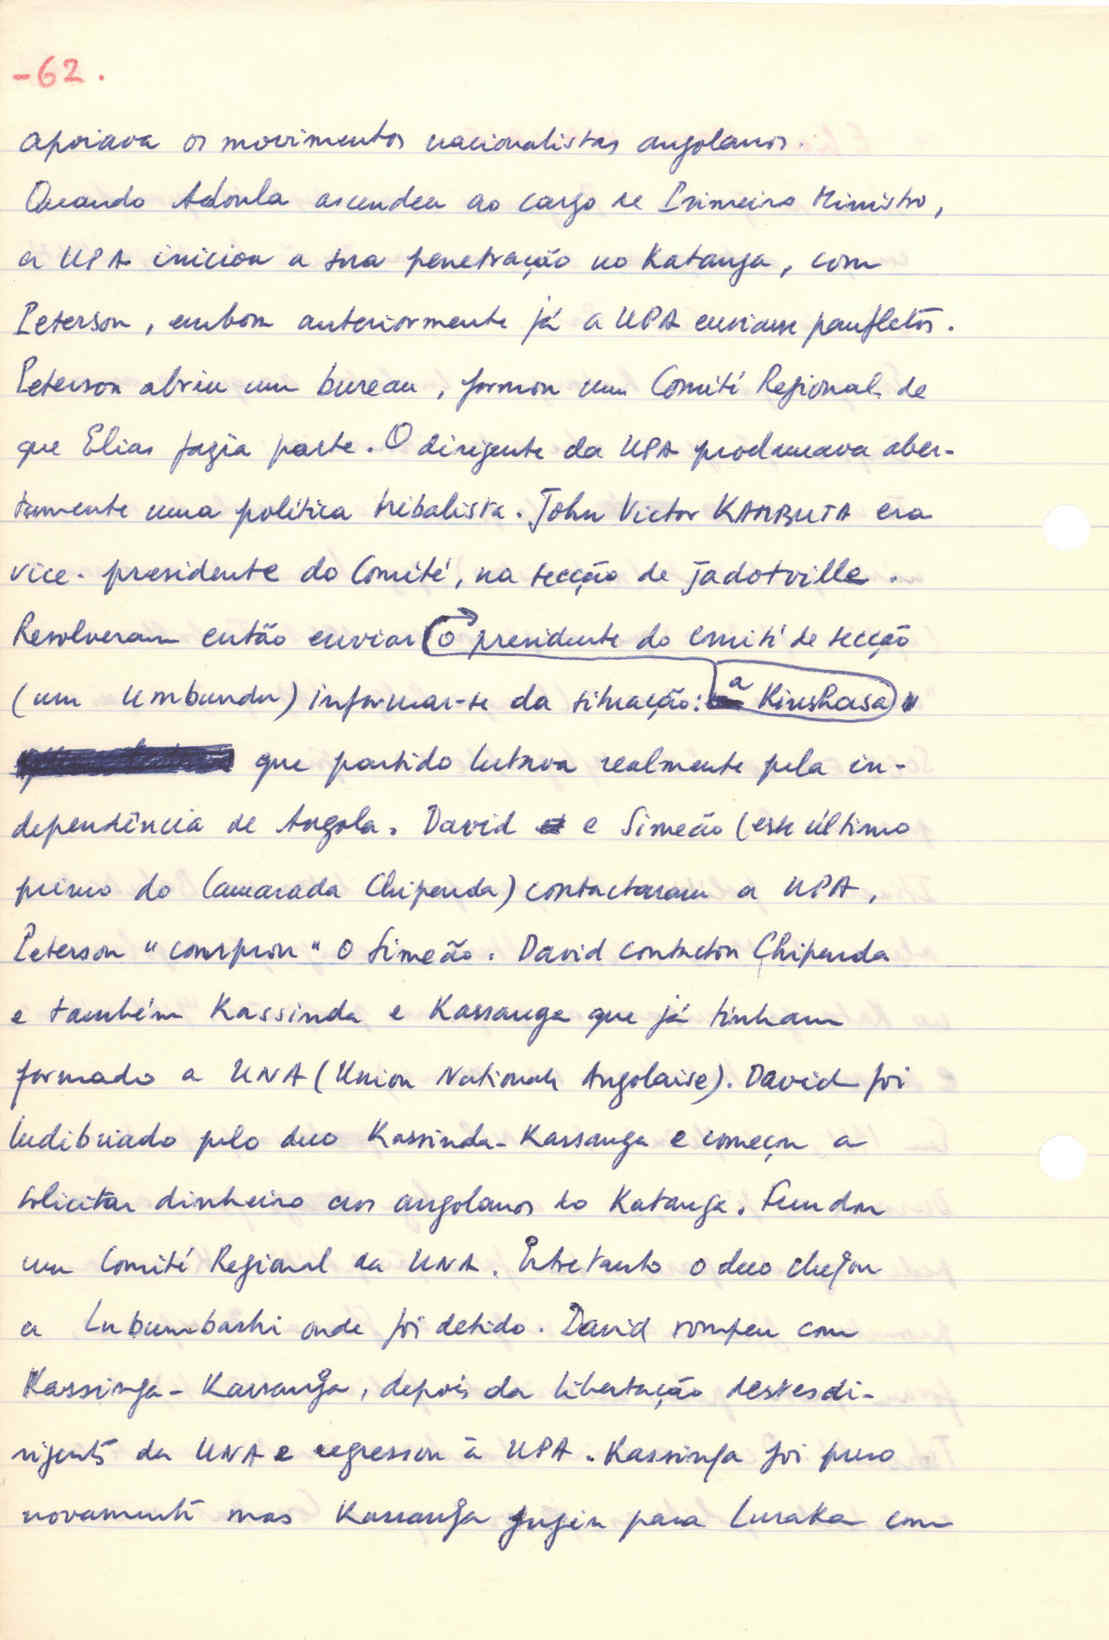 -62.
apoiava os movimentos nacionalistas angolanos.
Quando Adoula ascendeu ao cargo de Primeiro Ministro,
a UPA iniciou a sua penetração no Katanga, com
Peterson, embora anteriormente já a UPA enviasse panfletos.
Peterson abriu um bureau, formou um Comité Regional de
que Elias fazia parte. O dirigente da UPA proclamava aber-
tamente uma política tribalista. John Victor KAMBUTA era
vice-presidente do Comité, na secção de Jadotville.
Resolveram então enviar o presidente do comité de secção
(um Umbundu) informar-se da situação: a Kinshasa
que partido lutava realmente pela in-
dependência de Angola. David e Simeão (este último
primo do Camarada Chipenda) contactaram a UPA,
Peterson "comprou" o Simeão. David contactou Chipenda
e também Kassinda e Kassanga que já tinham
formado a UNA (Union Nationale Angolaise). David foi
ludibriado pelo duo Kassinda-Kassanga e começou a
solicitar dinheiro aos angolanos do Katanga. Fundou
um Comité Regional da UNA. Entretanto o duo chegou
a Lubumbashi onde foi detido. David rompeu com
Kassinga-Kassanga, depois da libertação destes di-
rigentes da UNA e regressou à UPA. Kassinga foi preso
novamente mas Kassanga fugiu para Lusaka com